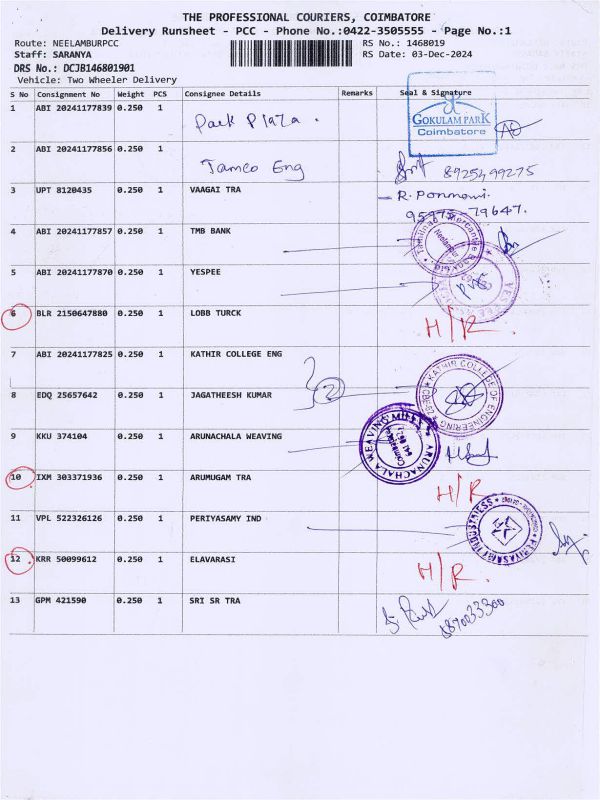 THE PROFESSIONAL COURIERS, COIMBATORE
Delivery Runsheet - PCC - Phone No.:0422-3505555 - Page No.:1
Route: NEELAMBURPCC RS No.: 1468019
Staff: SARANYA RS Date: 03-Dec-2024
DRS No.: DCJB146801901
Vehicle: Two Wheeler Delivery
S No Consignment No Weight PCS Consignee Details Remarks Seal & Signature
1 ABI 20241177839 0.250 1 Park Plaza.
GOKULAM PARK
Coimbatore
2 ABI 20241177856 0.250 1 Tamco Eng 8925499275
3 UPT 8120435 0.250 1 VAAGAI TRA R. Ponmani.
95975-79647.
4 ABI 20241177857 0.250 1 TMB BANK
5 ABI 20241177870 0.250 1 YESPEE
6 BLR 2150647880 0.250 1 LOBB TURCK H/R.
7 ABI 20241177825 0.250 1 KATHIR COLLEGE ENG
KATHIR COLLEGE OF ENGINEERING
8 EDQ 25657642 0.250 1 JAGATHEESH KUMAR 2
9 KKU 374104 0.250 1 ARUNACHALA WEAVING
ARUNACHALA WEAVING MILLS
10 IXM 303371936 0.250 1 ARUMUGAM TRA H/R
11 VPL 522326126 0.250 1 PERIYASAMY IND
PERIYASAMY INDUSTRIESS
12 KRR 50099612 0.250 1 ELAVARASI H/R.
13 GPM 421590 0.250 1 SRI SR TRA